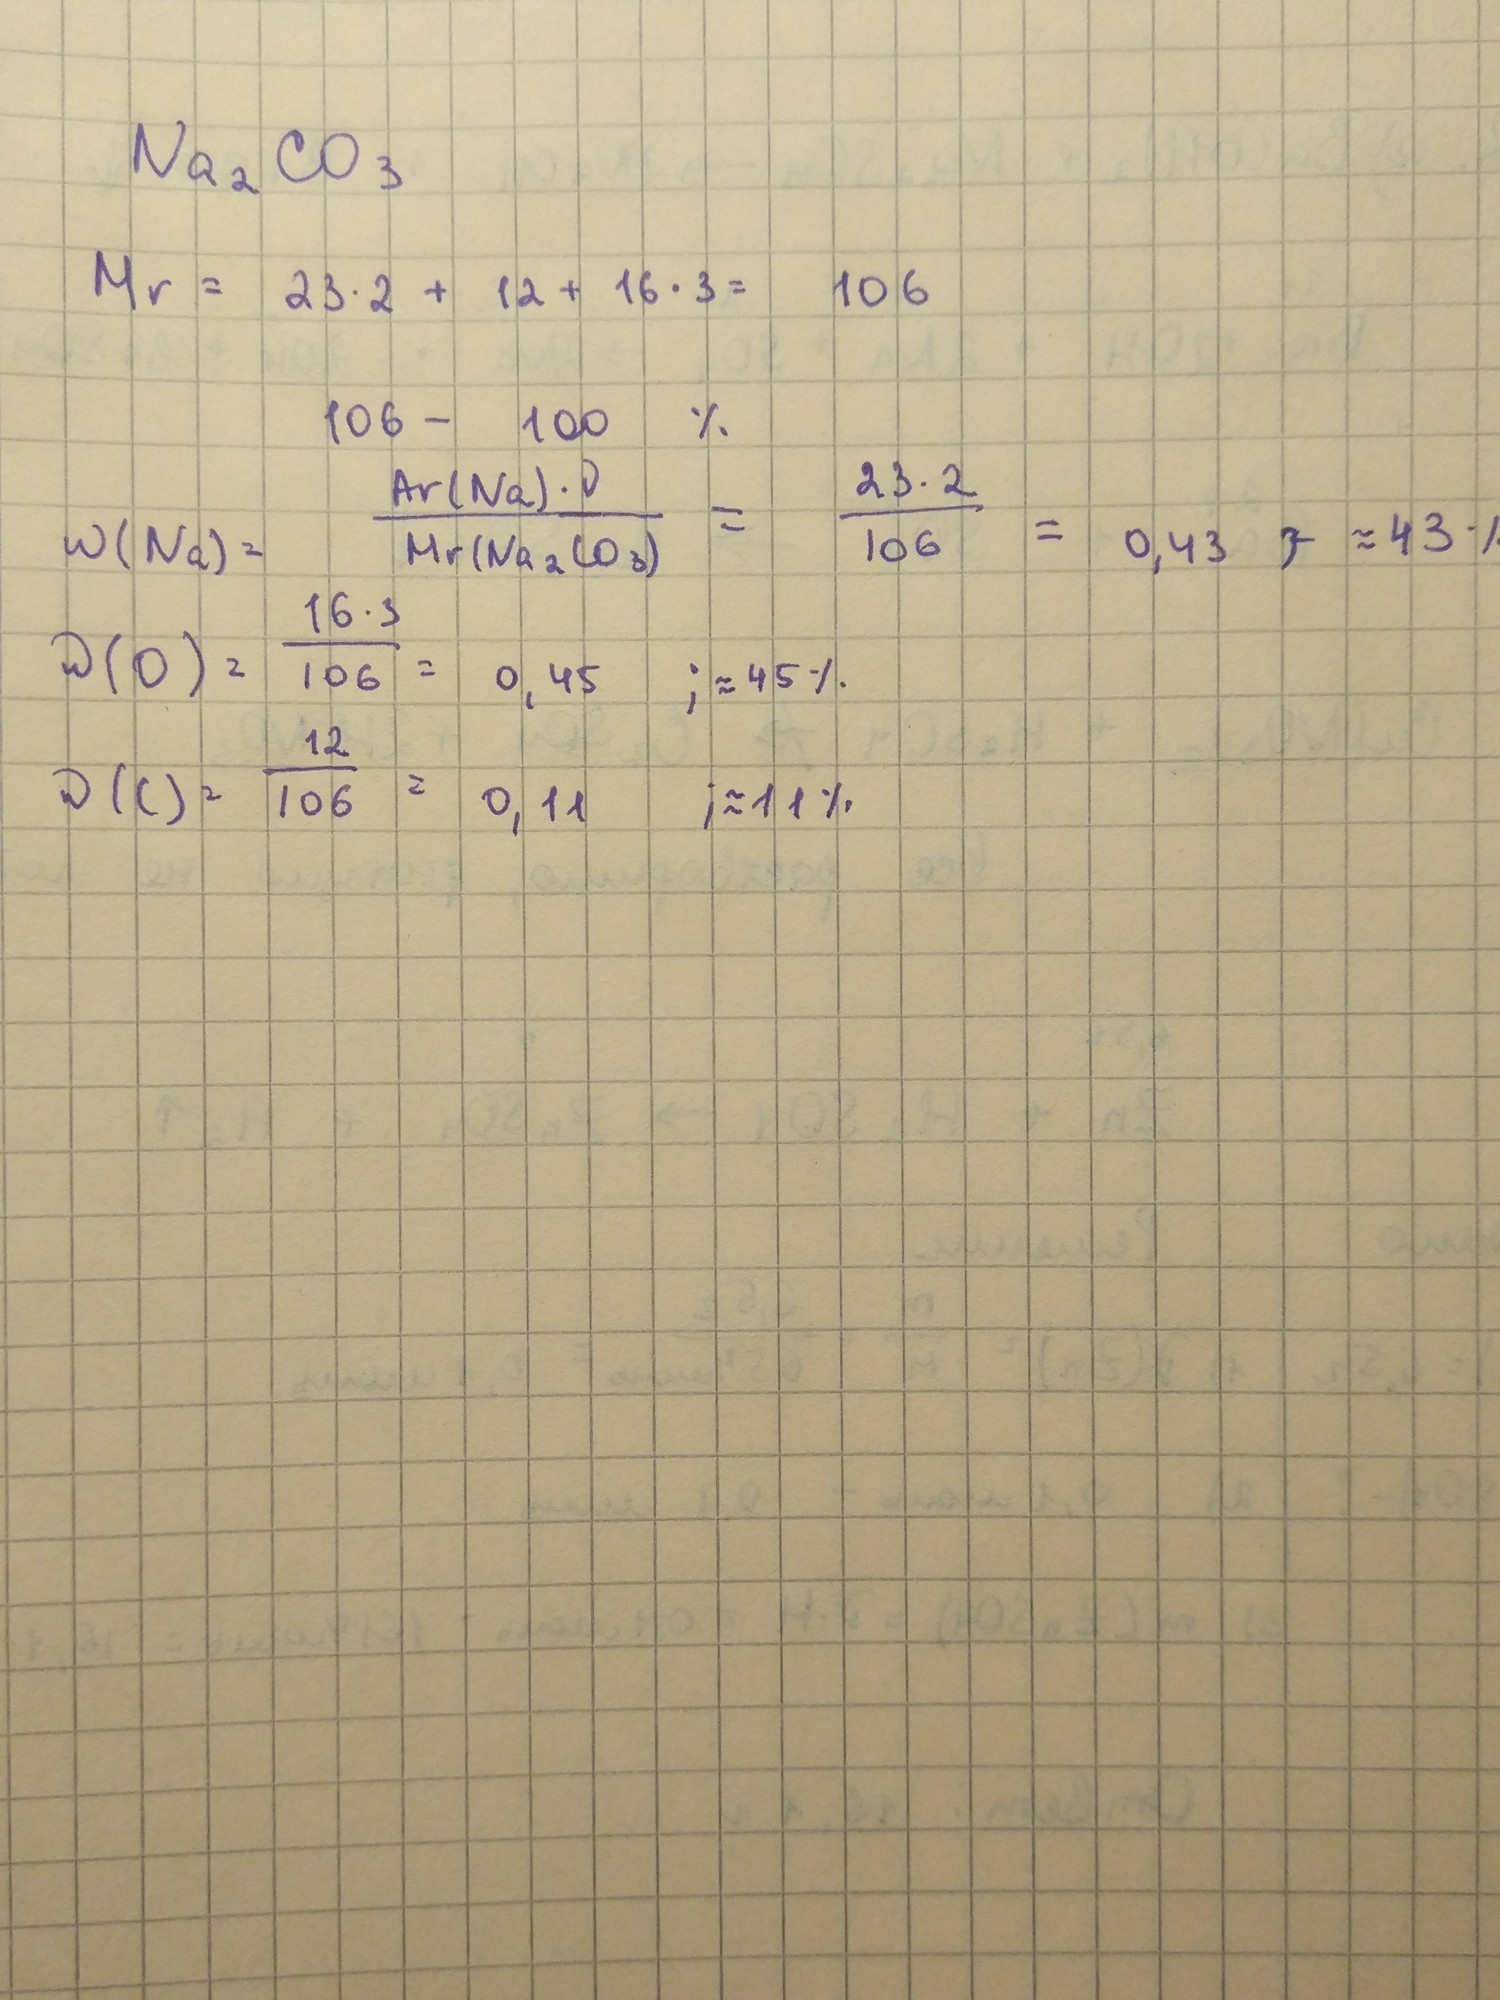 Na₂CO₃
Mr = 23·2 + 12 + 16·3 = 106
106 - 100 %
ω(Na) = Ar(Na)·υ / Mr(Na₂CO₃) = 23·2 / 106 = 0,43 ; ≈ 43 %
ω(O) = 16·3 / 106 = 0,45 ; ≈ 45 %
ω(C) = 12 / 106 = 0,11 ; ≈ 11 %